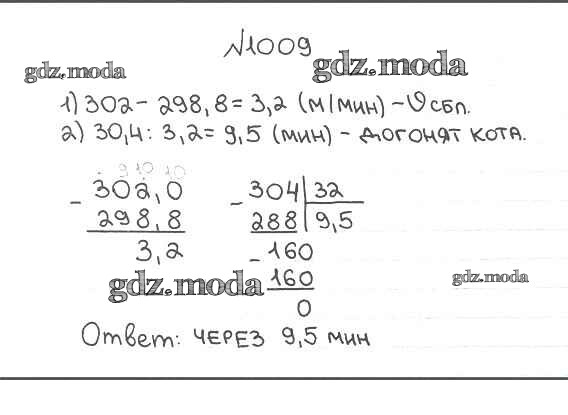 №1009
gdz.moda gdz.moda
1) 302 - 298,8 = 3,2 (м/мин) - ʋ сбл.
2) 30,4 : 3,2 = 9,5 (мин) - догонят кота.
. 9 10 10
- 302,0 - 304 | 32
298,8 288 | 9,5
3,2 - 160
gdz.moda 160 gdz.moda
0
Ответ: через 9,5 мин